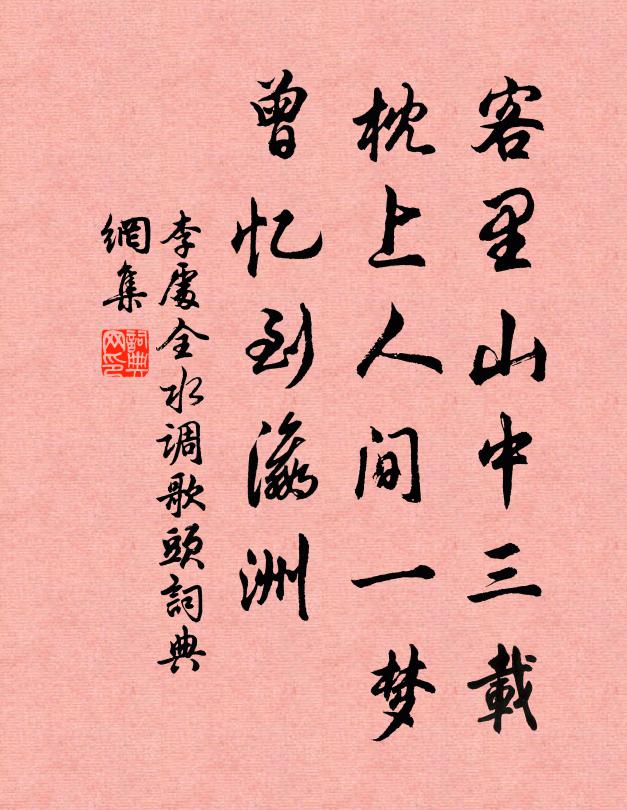 客里山中三載
枕上人间一梦
曾忆到瀛洲
李處全水调歌頭詞典
網集
詞典
网印